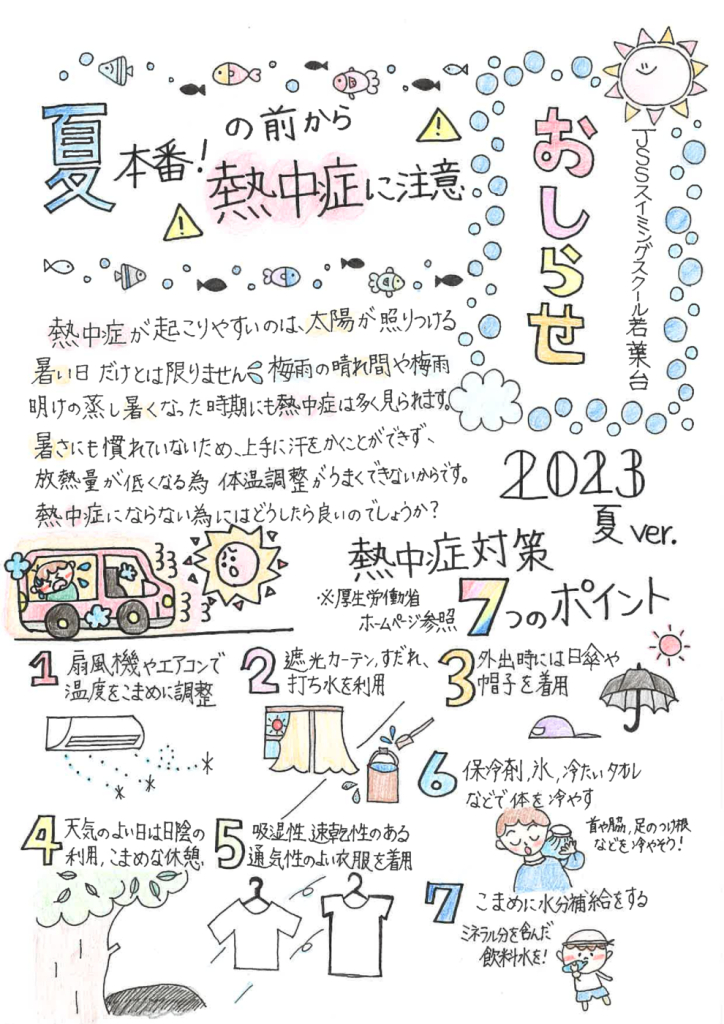 おしらせ
JSSスイミングスクール若葉台
夏本番!の前から
熱中症に注意
熱中症が起こりやすいのは、太陽が照りつける
暑い日だけとは限りません 梅雨の晴れ間や梅雨
明けの蒸し暑くなった時期にも熱中症は多く見られます。
暑さにも慣れていないため、上手に汗をかくことができず、
放熱量が低くなる為 体温調整がうまくできないからです。
熱中症にならない為にはどうしたら良いのでしょうか?
2023
夏 ver.
熱中症対策
7つのポイント
※厚生労働省
ホームページ参照
1 扇風機やエアコンで
温度をこまめに調整
2 遮光カーテン,すだれ、
打ち水を利用
3 外出時には日傘や
帽子を着用
4 天気のよい日は日陰の
利用,こまめな休憩
5 吸湿性,速乾性のある
通気性のよい衣服を着用
6 保冷剤,氷,冷たいタオル
などで体を冷やす
首や脇,足のつけ根
などを冷やそう!
7 こまめに水分補給をする
ミネラル分を含んだ
飲料水を!